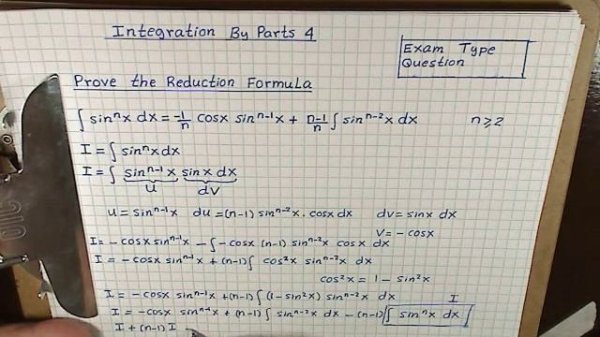 Integration By Parts 4
Exam Type
Question
Prove the Reduction Formula
∫ sinⁿx dx = -1/n cosx sinⁿ⁻¹x + n-1/n ∫ sinⁿ⁻²x dx n≥2
I = ∫ sinⁿx dx
I = ∫ sinⁿ⁻¹x sinx dx
u dv
u = sinⁿ⁻¹x du = (n-1) sinⁿ⁻²x . cosx dx dv = sinx dx
v = - cosx
I = - cosx sinⁿ⁻¹x - ∫ - cosx (n-1) sinⁿ⁻²x cosx dx
I = - cosx sinⁿ⁻¹x + (n-1) ∫ cos²x sinⁿ⁻²x dx
cos²x = 1 - sin²x
I = - cosx sinⁿ⁻¹x + (n-1) ∫ (1 - sin²x) sinⁿ⁻²x dx I
I = - cosx sinⁿ⁻¹x + (n-1) ∫ sinⁿ⁻²x dx - (n-1) ∫ sinⁿx dx
I + (n-1) I